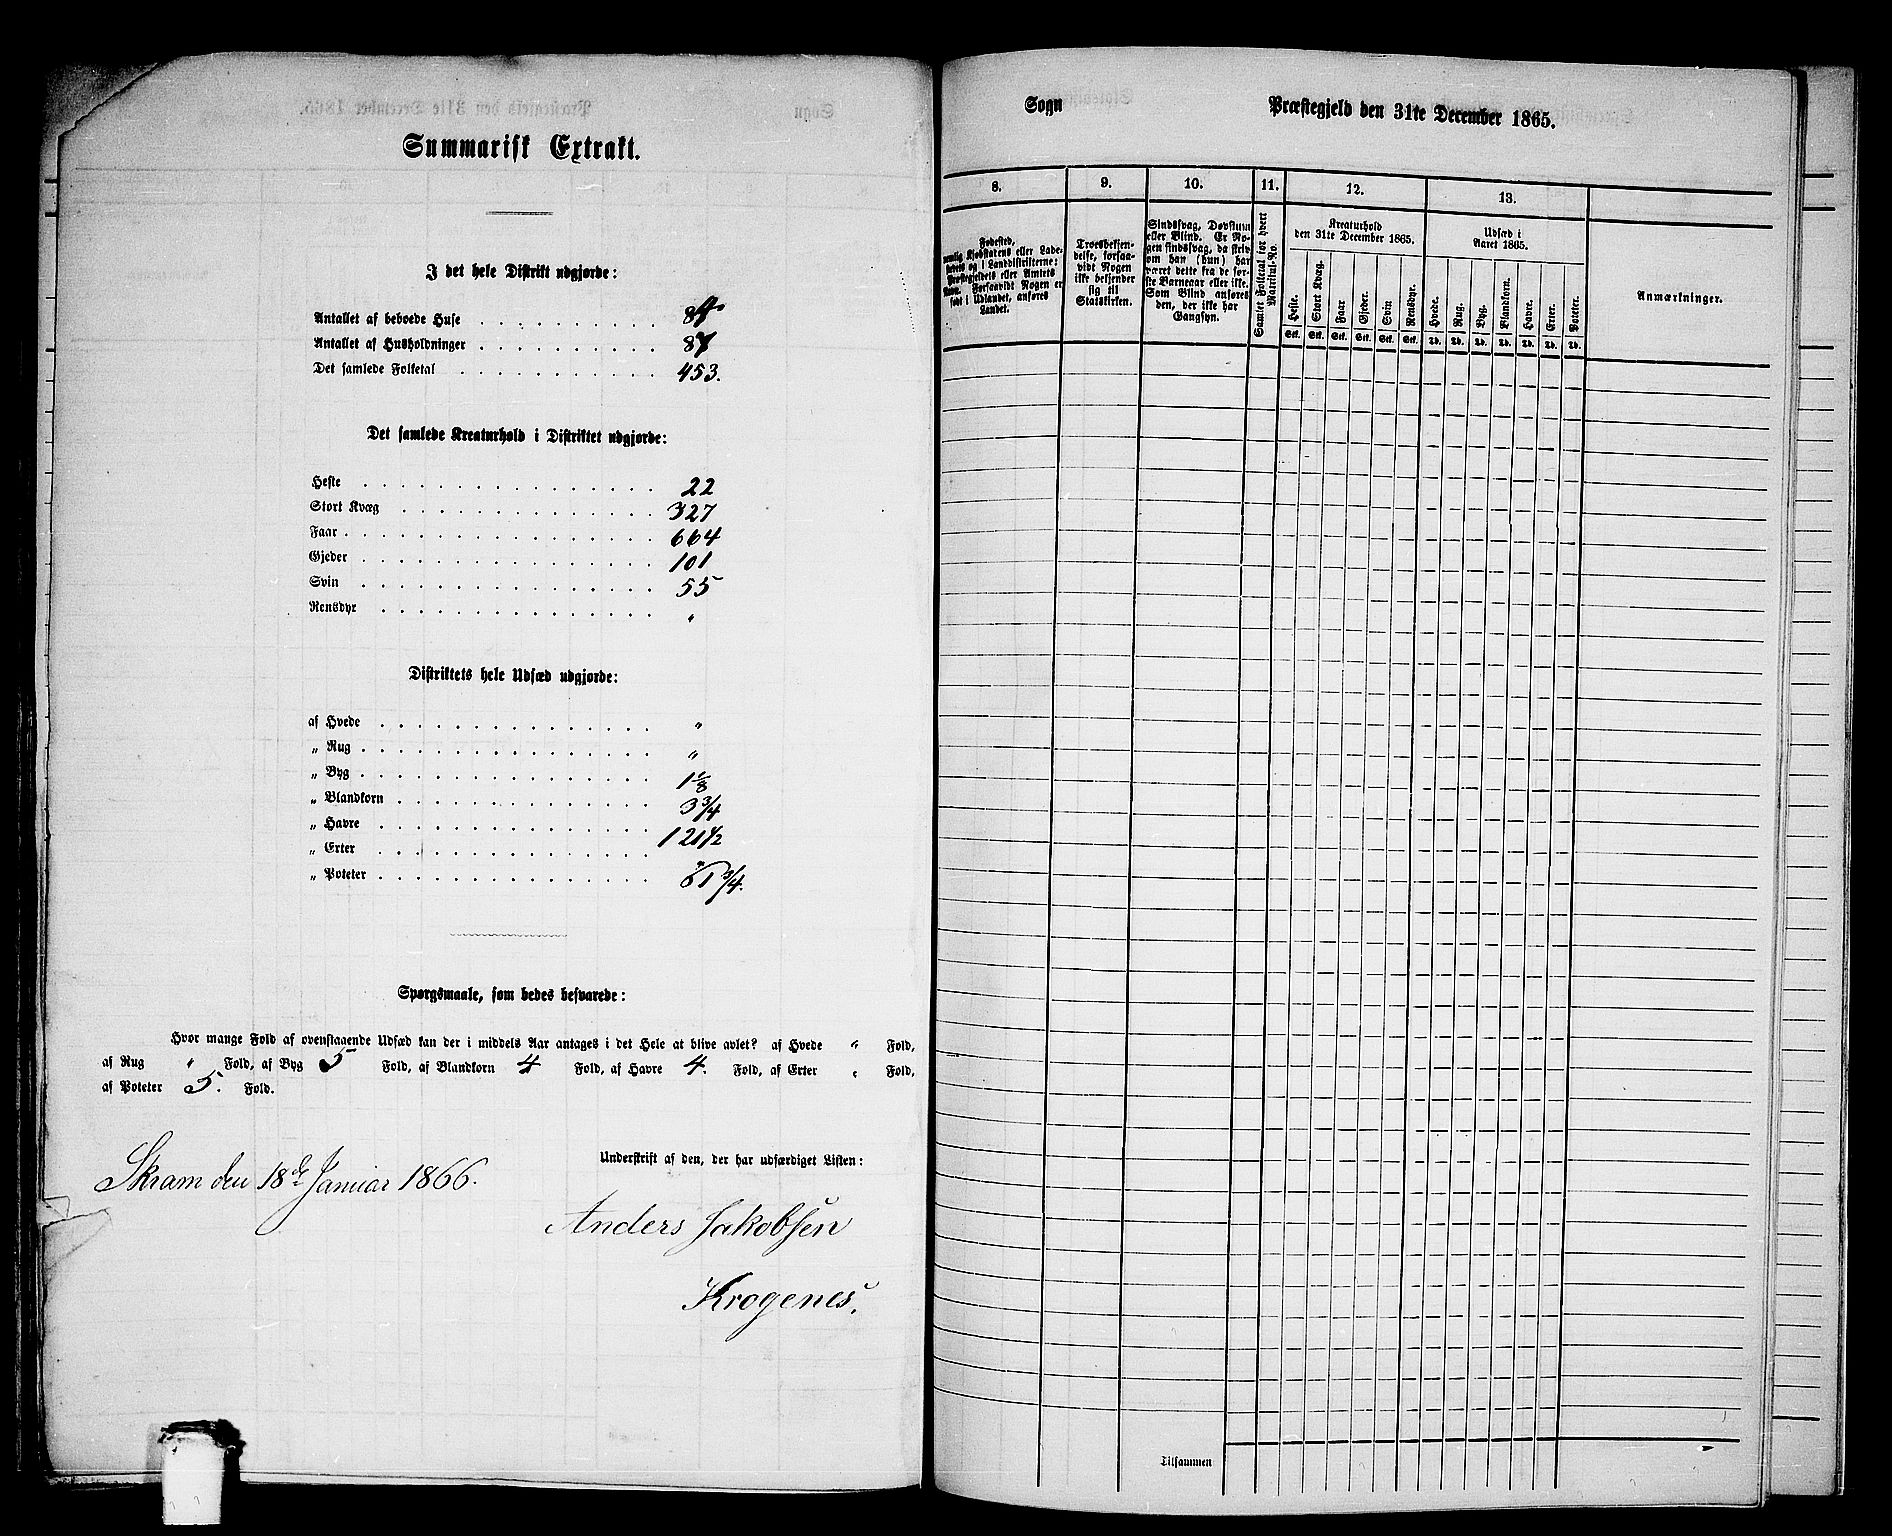 Summarisk Extrakt.
I det hele Distrikt udgjorde:
Antallet af beboede Huse . . . . . . . . . 84
Antallet af Husholdninger . . . . . . . . . 87
Det samlede Folketal . . . . . . . . . . 453.
Det samlede Kreaturhold i Distriktet udgjorde:
Heste . . . . . . . . . . . . . . . . 22
Stort Kvæg . . . . . . . . . . . . . . 327
Faar . . . . . . . . . . . . . . . . . 664
Gjeder . . . . . . . . . . . . . . . . 101
Svin . . . . . . . . . . . . . . . . 55
Rensdyr . . . . . . . . . . . . . . . "
Distriktets hele Udsæd udgjorde:
af Hvede . . . . . . . . . . . . . . . "
„ Rug . . . . . . . . . . . . . . . . "
„ Byg . . . . . . . . . . . . . . . . 1 1/8
„ Blandkorn . . . . . . . . . . . . . . 3 3/4
„ Havre . . . . . . . . . . . . . . . 121 1/2
„ Erter . . . . . . . . . . . . . . . "
„ Poteter . . . . . . . . . . . . . . . 61 3/4.
Spørgsmaale, som bedes besvarede:
Hvor mange Fold af ovenstaaende Udsæd kan der i middels Aar antages i det Hele at blive avlet? af Hvede " Fold,
af Rug " Fold, af Byg 5 Fold, af Blandkorn 4 Fold, af Havre 4. Fold, af Erter " Fold,
af Poteter 5. Fold.
Skram den 18de Januar 1866.
Underskrift af den, der har udfærdiget Listen:
Anders Jakobsen
Krogenes.
Sogn Præstegjeld den 31te December 1865.
8. 9. 10. 11. 12. 13.
Fødested,
nemlig Kjøbstadens eller Lade-
stedets og i Landdistrikterne:
Præstegjeldets eller Amtets
Navn. Forsaavidt Nogen er
født i Udlandet, anføres
Landet.
Troesbekjen-
delse, forsaa-
vidt Nogen
ikke bekjender
sig til
Statskirken.
Sindssvag, Døvstum
eller Blind. Er No-
gen sindssvag, da skriv
om han (hun) har
været dette fra de før-
ste Barneaar eller ikke.
Som Blind anføres
den, der ikke har
Gangsyn.
Samlet Folketal for hvert
Matrikul-No.
Kreaturhold
den 31te December 1865.
Heste. Stort Kvæg. Faar Gjeder. Svin Rensdyr.
Stk. Stk. Stk. Stk. Stk. Stk.
Udsæd i
Aaret 1865.
Hvede. Rug. Byg. Blandkorn. Havre. Erter. Poteter.
Td. Td. Td. Td. Td. Td. Td.
Anmærkninger.
Tilsammen